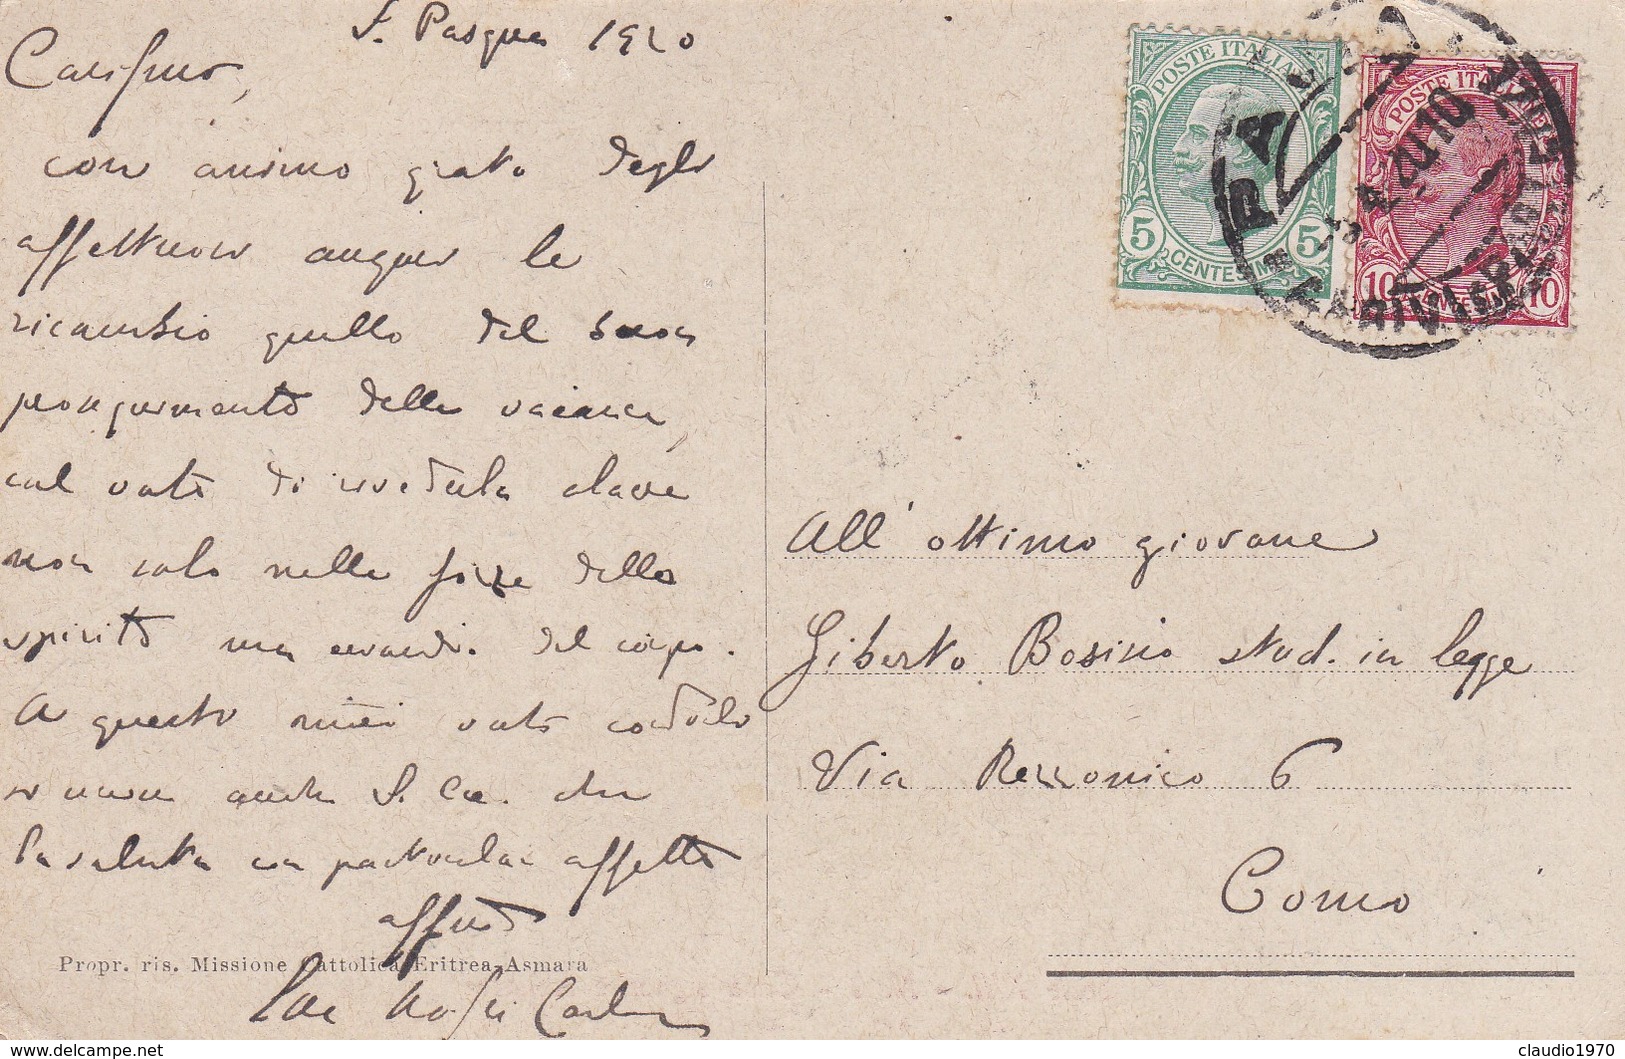 S. Pasqua 1920
Carissimo,
con animo grato degli
affettuosi auguri le
ricambio quello del buon
proseguimento delle vacanze,
col voto di rivederla alacre
non solo nelle forze dello
spirito ma del corpo.
A questo voto
anche che
la saluta con particolar affetto
Carlo
Propr. ris. Missione Cattolica Eritrea-Asmara
POSTE ITALIANE
5 5
CENTESIMI
POSTE ITALIANE
10 10
CENTESIMI
All' ottimo giovane
Giberto Bosisio stud. in legge
Via Rezzonico 6
Como
delcampe.net
claudio1970